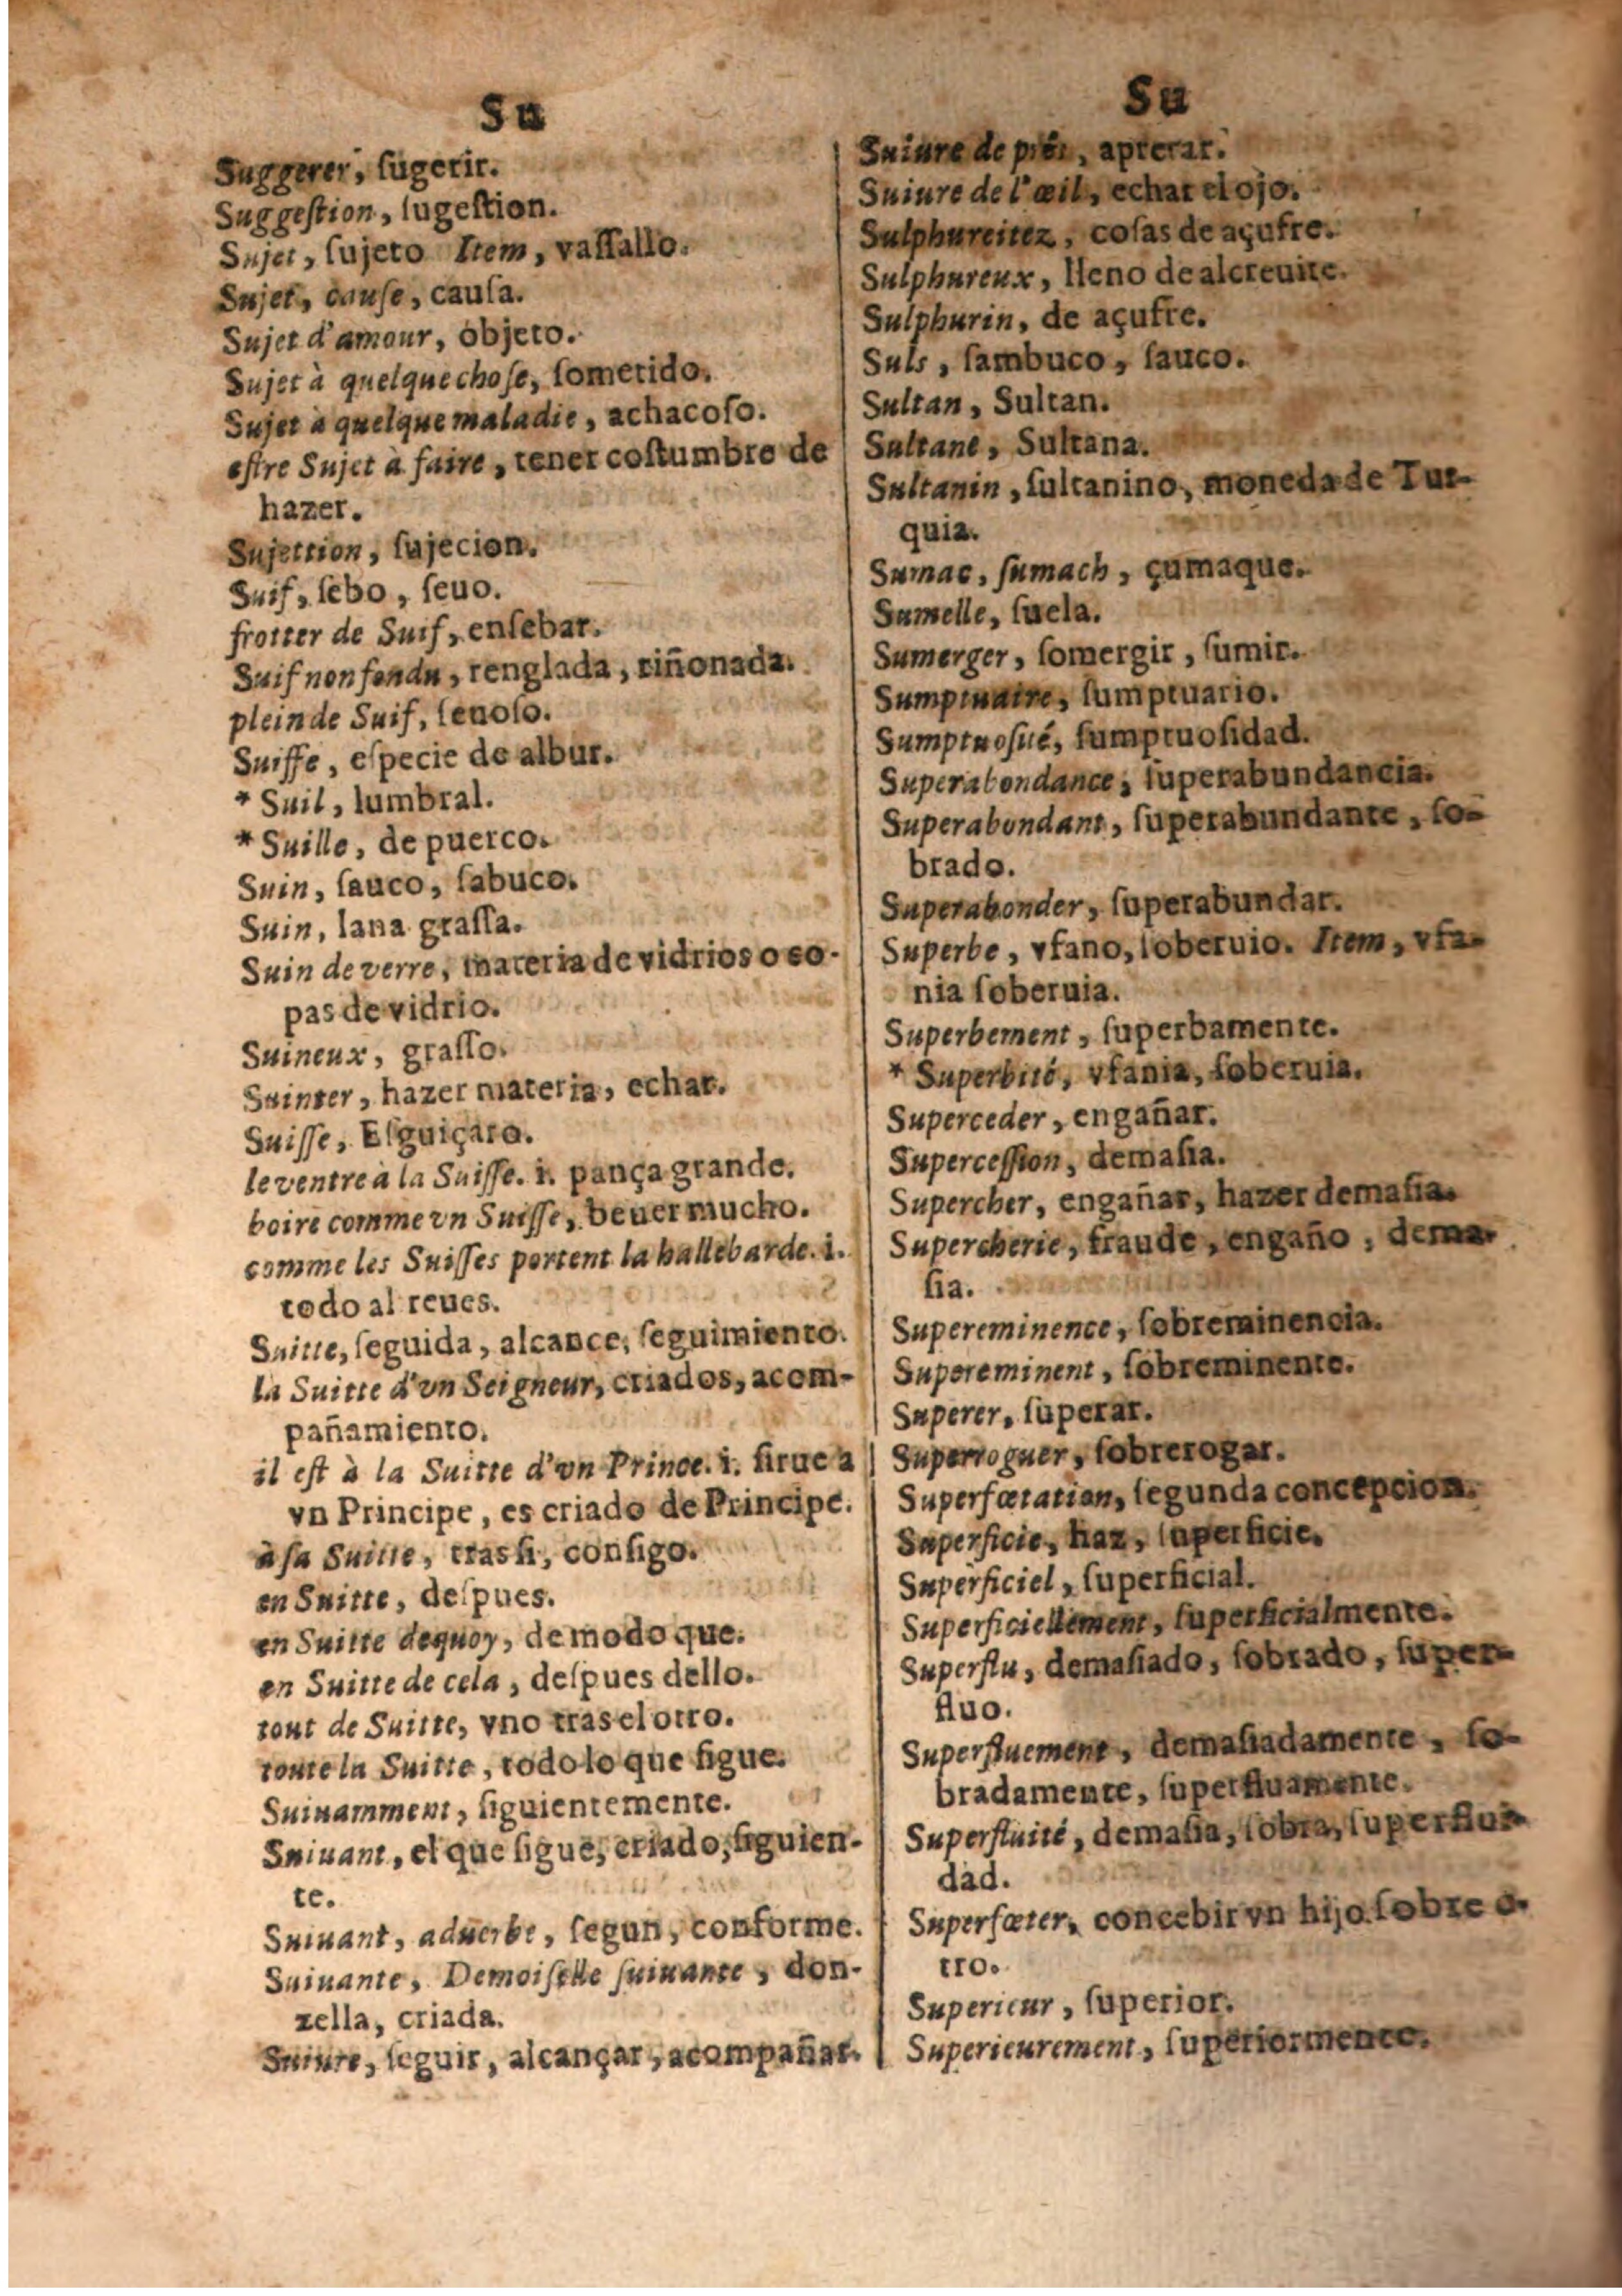 Su
Suggerer, ſugerir.
Suggeſtion, ſugeſtion.
Sujet, ſujeto Item, vaſſallo.
Sujet, cauſe, cauſa.
Sujet d'amour, objeto.
Sujet à quelque choſe, ſometido.
Sujet à quelque maladie, achacoſo.
eſtre Sujet à faire, tener coſtumbre de
hazer.
Sujettion, ſujecion.
Suif, ſebo, ſeuo.
frotter de Suif, enſebar.
Suif non fondu, renglada, riñonada.
plein de Suif, ſeuoſo.
Suiffe, eſpecie de albur.
* Suil, lumbral.
* Suille, de puerco.
Suin, ſauco, ſabuco.
Suin, lana graſſa.
Suin de verre, materia de vidrios o co-
pas de vidrio.
Suineux, graſſo.
Suinter, hazer materia, echar.
Suiſſe, Eſguiçaro.
le ventre à la Suiſſe. i. pança grande.
boire comme vn Suiſſe, beuer mucho.
comme les Suiſſes portent la hallebarde. i.
todo al reues.
Suitte, ſeguida, alcance, ſeguimiento.
la Suitte d'vn Seigneur, criados, acom-
pañamiento.
il eſt à la Suitte d'vn Prince. i. ſirue a
vn Principe, es criado de Principe.
à ſa Suitte, tras ſi, conſigo.
en Suitte, deſpues.
en Suitte dequoy, de modo que.
en Suitte de cela, deſpues dello.
tout de Suitte, vno tras el otro.
toute la Suitte, todo lo que ſigue.
Suiuamment, ſiguientemente.
Suiuant, el que ſigue, criado, ſiguien-
te.
Suiuant, aduerbe, ſegun, conforme.
Suiuante, Demoiſelle ſuiuante, don-
zella, criada.
Suiure, ſeguir, alcançar, acompañar.
Su
Suiure de prés, apretar.
Suiure de l'œil, echar el ojo.
Sulphureitez, coſas de açufre.
Sulphureux, lleno de alcreuite.
Sulphurin, de açufre.
Suls, ſambuco, ſauco.
Sultan, Sultan.
Sultane, Sultana.
Sultanin, ſultanino, moneda de Tur-
quia.
Sumac, ſumach, çumaque.
Sumelle, ſuela.
Sumerger, ſomergir, ſumir.
Sumptuaire, ſumptuario.
Sumptuoſité, ſumptuoſidad.
Superabondance, ſuperabundancia.
Superabondant, ſuperabundante, ſo-
brado.
Superabonder, ſuperabundar.
Superbe, vfano, ſoberuio. Item, vfa-
nia ſoberuia.
Superbement, ſuperbamente.
* Superbité, vfania, ſoberuia.
Superceder, engañar.
Superceſſion, demaſia.
Supercher, engañar, hazer demaſia.
Supercherie, fraude, engaño, dema-
ſia.
Supereminence, ſobreminencia.
Supereminent, ſobreminente.
Superer, ſuperar.
Superroguer, ſobrerogar.
Superfœtation, ſegunda concepcion.
Superficie, haz, ſuperficie.
Superficiel, ſuperficial.
Superficiellement, ſuperficialmente.
Superflu, demaſiado, ſobrado, ſuper-
fluo.
Superfluement, demaſiadamente, ſo-
bradamente, ſuperfluamente.
Superfluité, demaſia, ſobra, ſuperflui-
dad.
Superfœter, concebir vn hijo ſobre o-
tro.
Superieur, ſuperior.
Superieurement, ſuperiormente.